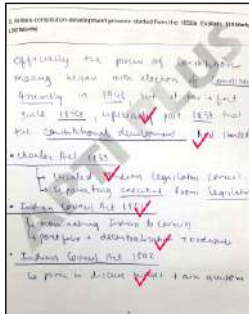 2. Indian constitution development process started from the 1850s. Explain. (15 Marks)
Officially the process of constitution
making began with election of Constituent
Assembly in 1946 but it is a fact
since 1858, post 1857 that
the constitutional development had started
• Charter Act 1853
↳ Created Indian Legislative Council.
↳ Separating executive from legislative
• Indian Council Act 1861
↳ nominating Indians to council
↳ portfolio + decentralisation
• Indian Council Act 1892
↳ power to discuss budget + ask question
ARTITLUS